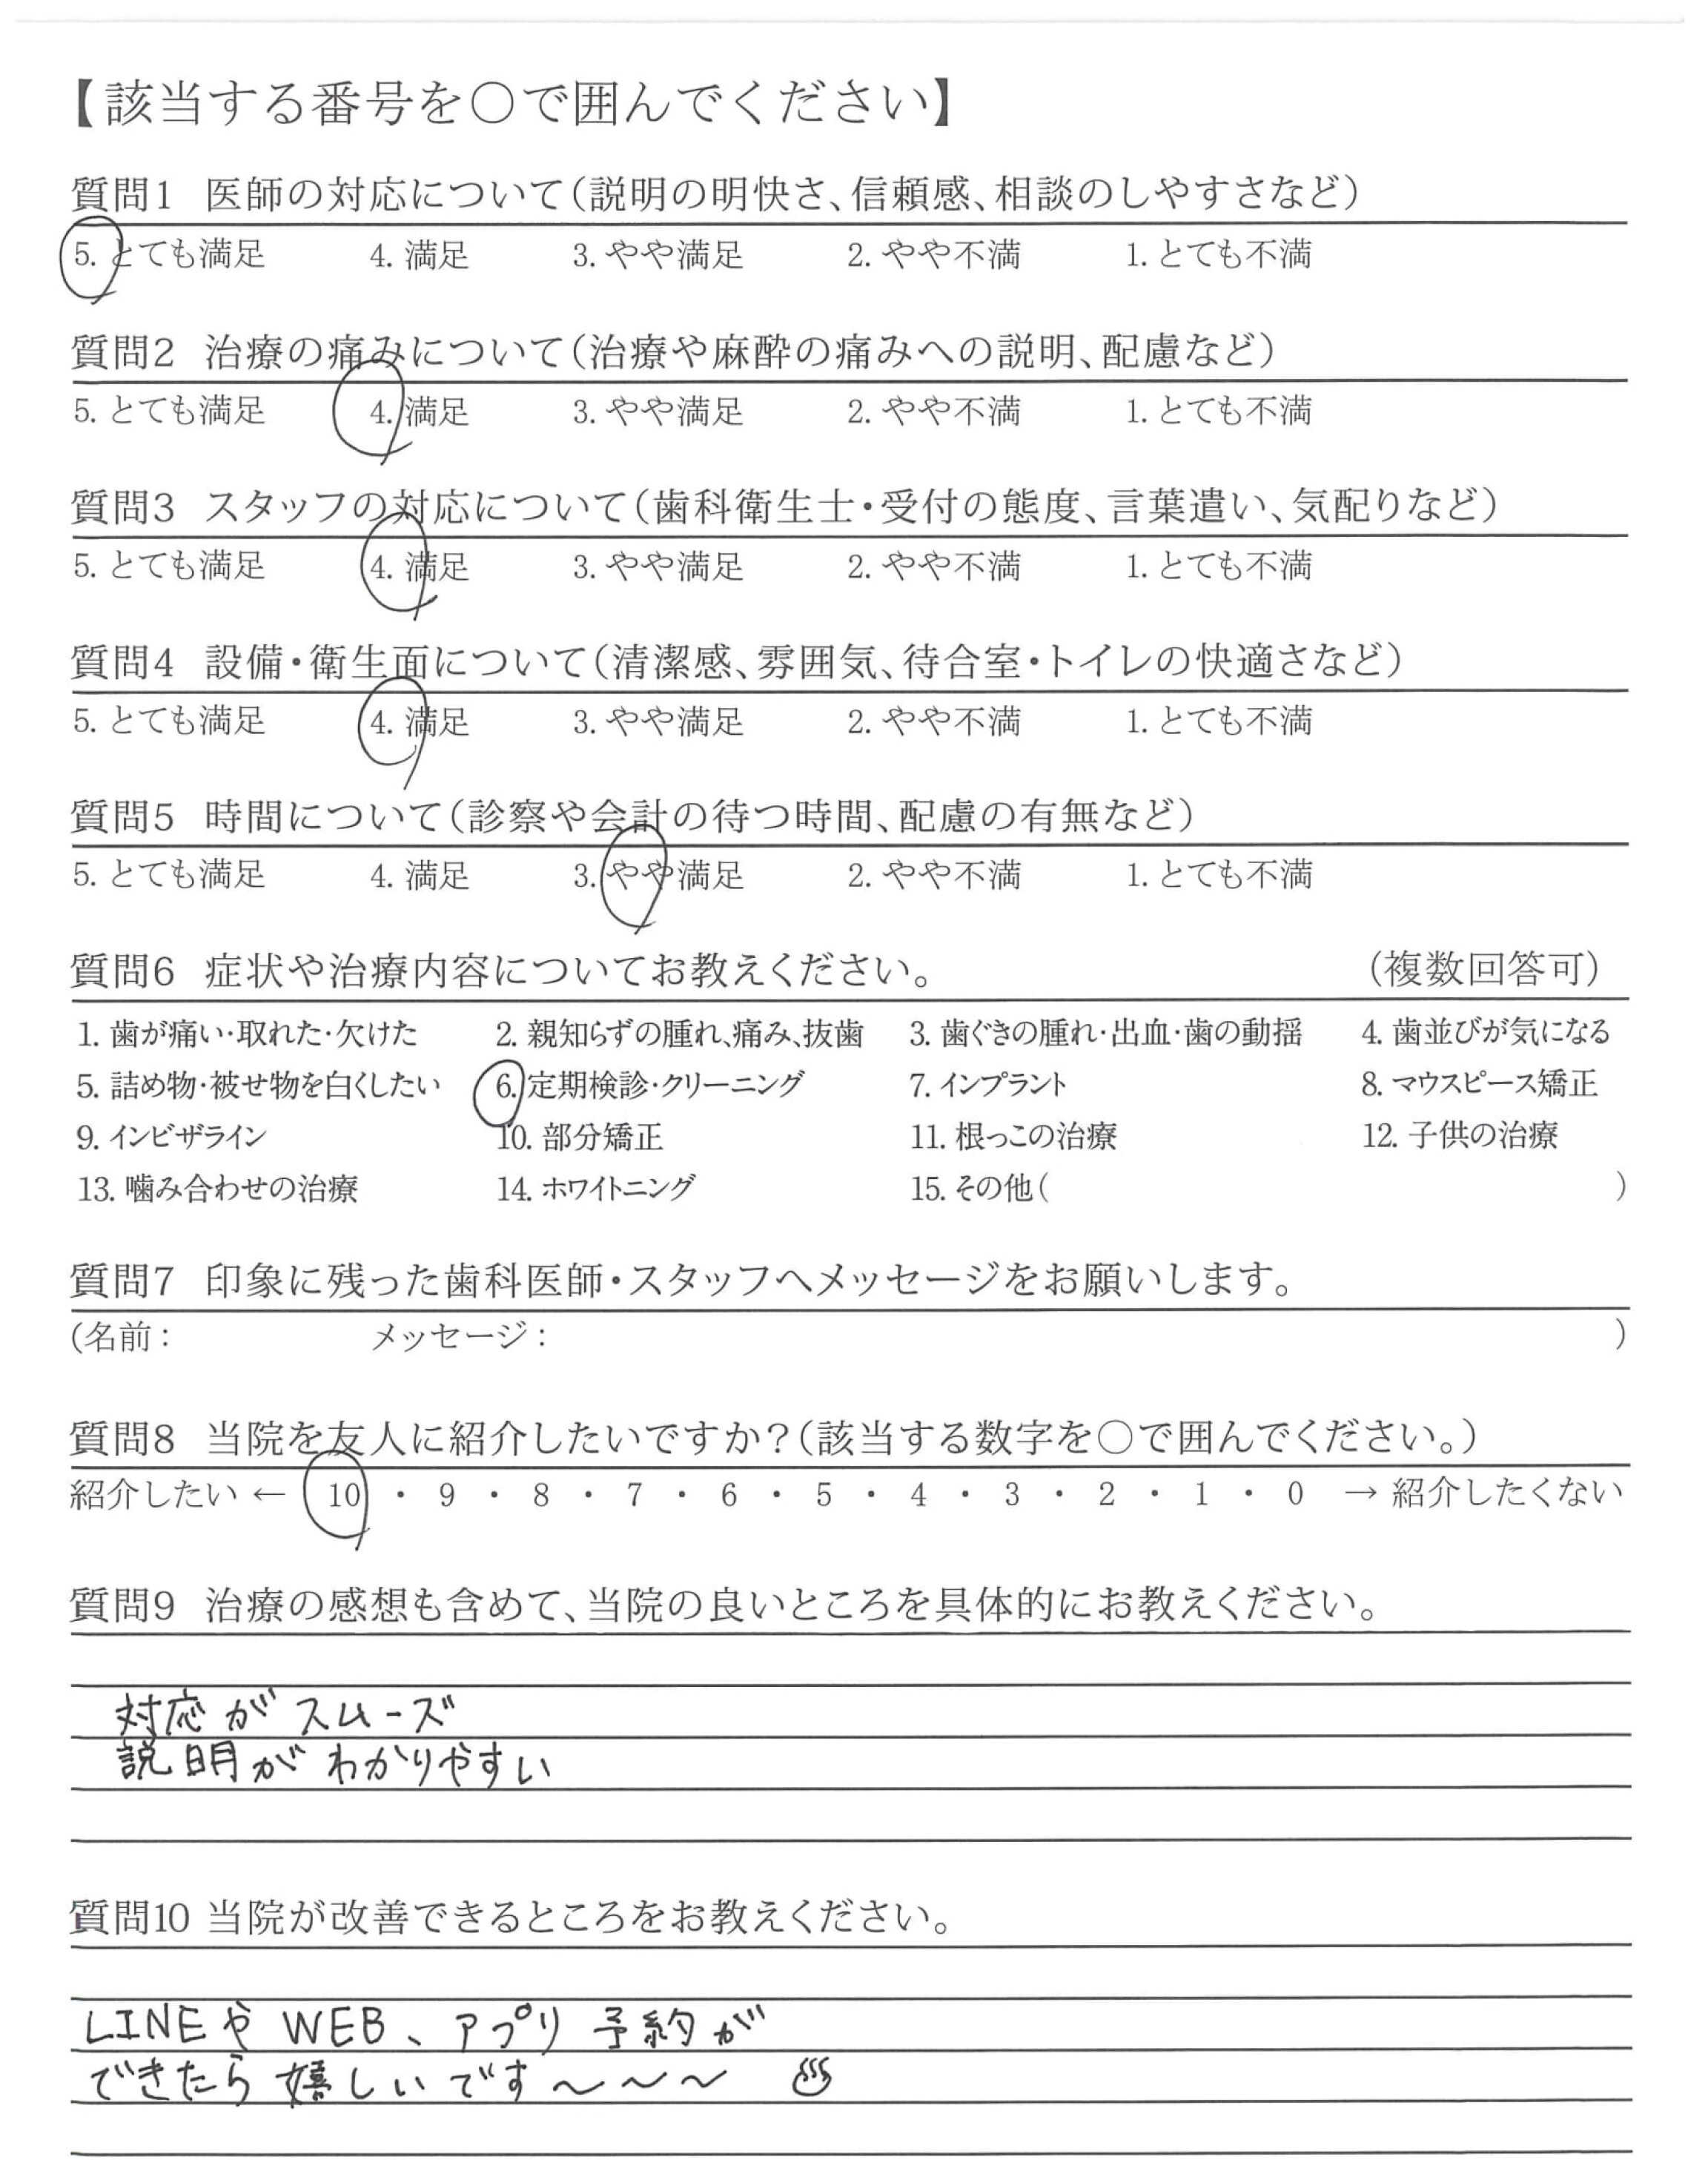 【該当する番号を○で囲んでください】
質問1 医師の対応について（説明の明快さ、信頼感、相談のしやすさなど）
5. とても満足 4. 満足 3. やや満足 2. やや不満 1. とても不満
質問2 治療の痛みについて（治療や麻酔の痛みへの説明、配慮など）
5. とても満足 4. 満足 3. やや満足 2. やや不満 1. とても不満
質問3 スタッフの対応について（歯科衛生士・受付の態度、言葉遣い、気配りなど）
5. とても満足 4. 満足 3. やや満足 2. やや不満 1. とても不満
質問4 設備・衛生面について（清潔感、雰囲気、待合室・トイレの快適さなど）
5. とても満足 4. 満足 3. やや満足 2. やや不満 1. とても不満
質問5 時間について（診察や会計の待つ時間、配慮の有無など）
5. とても満足 4. 満足 3. やや満足 2. やや不満 1. とても不満
質問6 症状や治療内容についてお教えください。 （複数回答可）
1. 歯が痛い・取れた・欠けた 2. 親知らずの腫れ、痛み、抜歯 3. 歯ぐきの腫れ・出血・歯の動揺 4. 歯並びが気になる
5. 詰め物・被せ物を白くしたい 6. 定期検診・クリーニング 7. インプラント 8. マウスピース矯正
9. インビザライン 10. 部分矯正 11. 根っこの治療 12. 子供の治療
13. 噛み合わせの治療 14. ホワイトニング 15. その他（ ）
質問7 印象に残った歯科医師・スタッフへメッセージをお願いします。
（名前： メッセージ： ）
質問8 当院を友人に紹介したいですか？（該当する数字を○で囲んでください。）
紹介したい ← 10 ・ 9 ・ 8 ・ 7 ・ 6 ・ 5 ・ 4 ・ 3 ・ 2 ・ 1 ・ 0 → 紹介したくない
質問9 治療の感想も含めて、当院の良いところを具体的にお教えください。
対応がスムーズ
説明がわかりやすい
質問10 当院が改善できるところをお教えください。
LINEやWEB、アプリ予約が
できたら嬉しいです〜〜〜 ♨